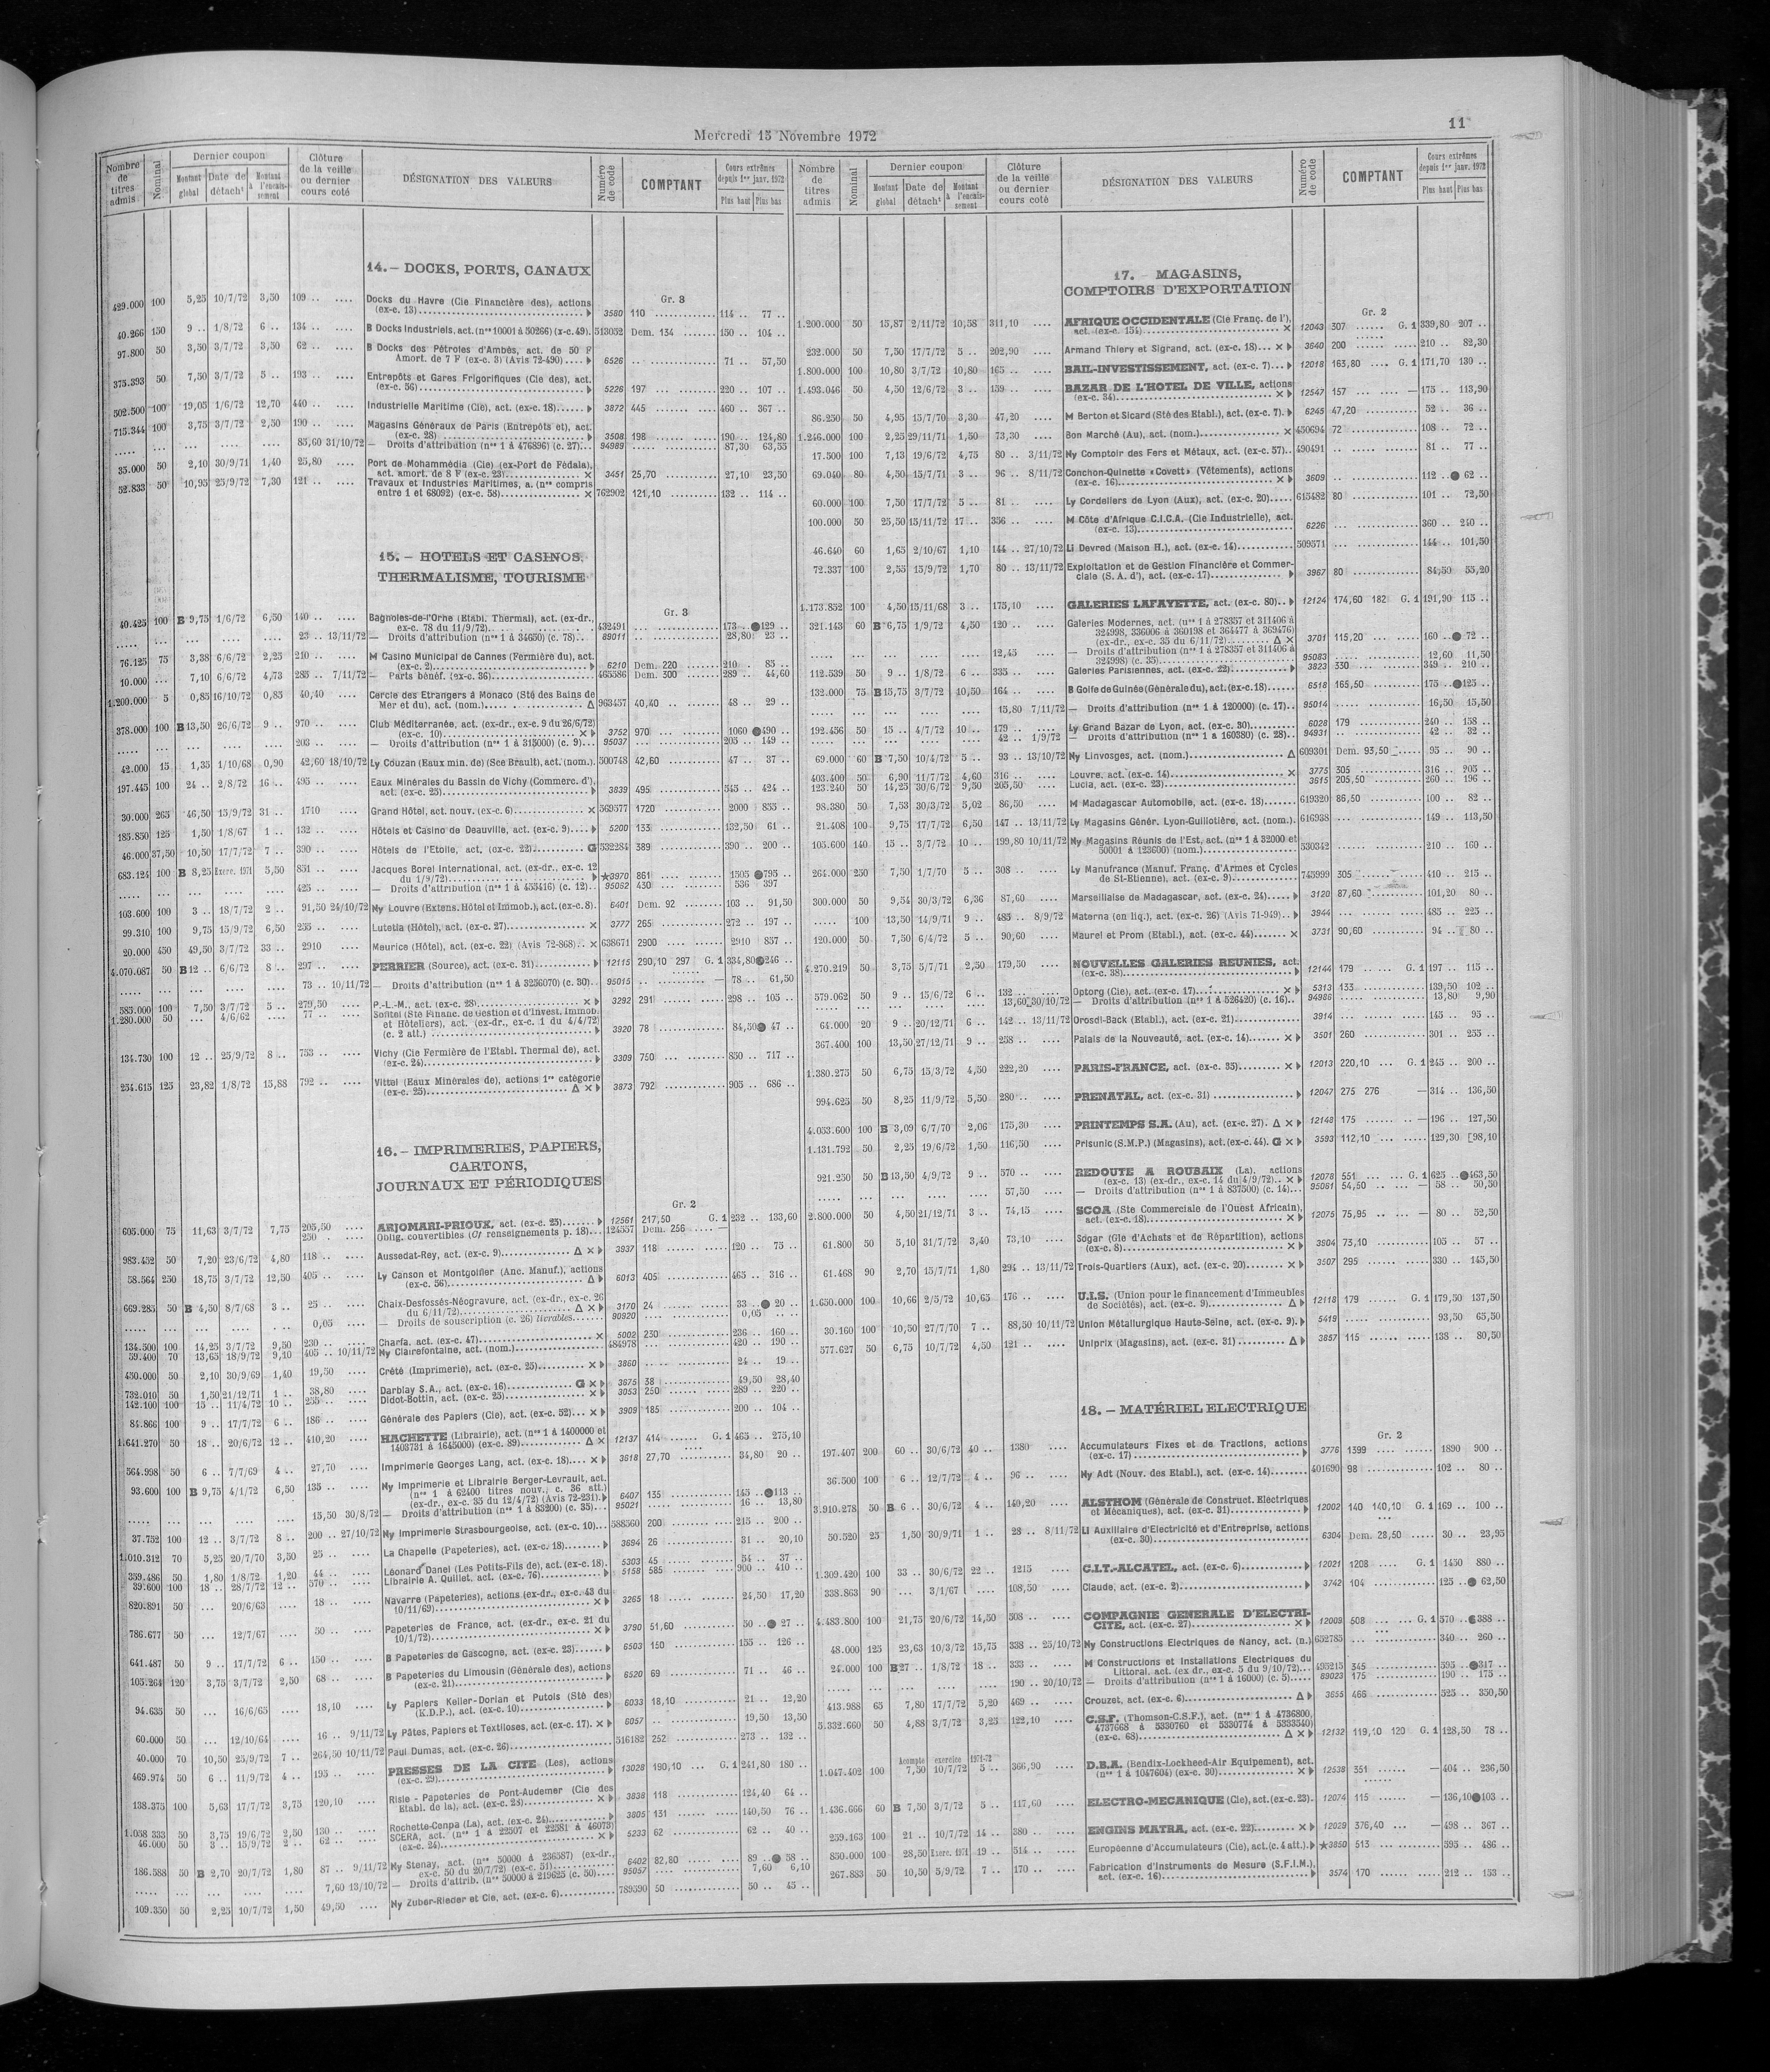 Mercredi 15 Novembre 1972
11
Nombre de titres admis
Nominal
Dernier coupon
Montant global
Date de détacht
Montant à l'encaissement
Clôture de la veille ou dernier cours coté
DÉSIGNATION DES VALEURS
Numéro de code
COMPTANT
Cours extrêmes depuis 1er janv. 1972
Plus haut Plus bas
14. – DOCKS, PORTS, CANAUX
Gr. 3
429.000 100 5,25 10/7/72 3,50 109 .. .... Docks du Havre (Cie Financière des), actions
(ex-c. 13) 3580 110 114 .. 77 ..
40.266 150 9 .. 1/8/72 6 .. 134 .. .... B Docks Industriels, act. (nos 10001 à 50266) (x-c. 49). 513052 Dem. 134 150 .. 104 ..
97.800 50 3,50 3/7/72 3,50 62 .. .... B Docks des Pétroles d'Ambès, act. de 50 F
Amort. de 7 F (ex-c. 3) (Avis 72-490) 6526 71 .. 57,50
375.393 50 7,50 3/7/72 5 .. 193 .. .... Entrepôts et Gares Frigorifiques (Cie des), act.
(ex-c. 56) 5226 197 220 .. 107 ..
502.500 100 19,05 1/6/72 12,70 440 .. .... Industrielle Maritime (Cie), act. (ex-c. 18) 3872 445 460 .. 367 ..
715.344 100 3,75 3/7/72 2,50 190 .. .... Magasins Généraux de Paris (Entrepôts et), act.
(ex-c. 28) 3508 198 190 .. 124,80
85,60 31/10/72 — Droits d'attribution (nos 1 à 476896) (c. 27) 94989 87,30 63,55
35.000 50 2,10 30/9/71 1,40 25,80 .... Port de Mohammédia (Cie) (ex-Port de Fédala),
act. amort. de 8 F (ex-c. 23) × 3451 25,70 27,10 23,50
52.833 50 10,95 25/9/72 7,30 121 .. .... Travaux et Industries Maritimes, a. (nos compris
entre 1 et 68092) (ex-c. 58) × 762902 121,10 132 .. 114 ..
15. – HOTELS ET CASINOS,
THERMALISME, TOURISME
Gr. 3
40.425 100 B 9,75 1/6/72 6,50 140 .. .... Bagnoles-de-l'Orne (Etabl. Thermal), act. (ex-dr.,
ex-c. 78 du 11/9/72) 432491 173 .. ●129 ..
23 .. 13/11/72 — Droits d'attribution (nos 1 à 34650) (c. 78) 89011 28,80 23 ..
76.125 75 3,38 6/6/72 2,25 210 .. .... M Casino Municipal de Cannes (Fermière du), act.
(ex-c. 2) 6210 Dem. 220 210 .. 85 ..
10.000 ... 7,10 6/6/72 4,73 285 .. 7/11/72 — Parts bénéf. (ex-c. 36) 465586 Dem. 300 289 .. 44,60
1.200.000 5 0,85 16/10/72 0,85 40,40 .... Cercle des Etrangers à Monaco (Sté des Bains de
Mer et du), act. (nom.) Δ 963457 40,40 48 .. 29 ..
378.000 100 B 13,50 26/6/72 9 .. 970 .. .... Club Méditerranée, act. (ex-dr., ex-c. 9 du 26/6/72)
(ex-c. 10) × 3752 970 1060 ●490 ..
203 .. .... — Droits d'attribution (nos 1 à 315000) (c. 9) 95037 205 .. 149 ..
42.000 15 1,35 1/10/68 0,90 42,60 18/10/72 Ly Couzan (Eaux min. de) (Sce Brault), act. (nom.). 500748 42,60 47 .. 37 ..
197.445 100 24 .. 2/8/72 16 .. 495 .. .... Eaux Minérales du Bassin de Vichy (Commerc. d'),
act. (ex-c. 25) 3839 495 545 .. 424 ..
30.000 265 46,50 15/9/72 31 .. 1710 .... Grand Hôtel, act. nouv. (ex-c. 6) × 369577 1720 2000 855 ..
185.850 125 1,50 1/8/67 1 .. 132 .. .... Hôtels et Casino de Deauville, act. (ex-c. 9) 5200 133 132,50 61 ..
46.000 37,50 10,50 17/7/72 7 .. 390 .. .... Hôtels de l'Etoile, act. (ex-c. 22) G 532284 389 390 .. 200 ..
683.124 100 B 8,25 Exerc. 1971 5,50 851 .. .... Jacques Borel International, act. (ex-dr., ex-c. 12
du 1/9/72) ★3970 861 1505 ●795 ..
425 .. .... — Droits d'attribution (nos 1 à 455416) (c. 12) 95052 430 536 397
103.600 100 3 .. 18/7/72 2 .. 91,50 24/10/72 Ny Louvre (Extens. Hôtel et Immob.), act. (ex-c. 8). 6401 Dem. 92 103 .. 91,50
99.310 100 9,75 15/9/72 6,50 255 .. .... Lutetia (Hôtel), act. (ex-c. 27) × 3777 265 272 .. 197 ..
20.000 450 49,50 3/7/72 33 .. 2910 .... Meurice (Hôtel), act. (ex-c. 22) (Avis 72-868) × 638671 2900 2910 857 ..
4.070.087 50 B 12 .. 6/6/72 8 .. 297 .. .... PERRIER (Source), act. (ex-c. 31) 12115 290,10 297 G. 1 334,80 ●246 ..
73 .. 10/11/72 — Droits d'attribution (nos 1 à 3256070) (c. 30) 95015 — 78 .. 61,50
583.000 100 7,50 3/7/72 5 .. 279,50 .... P.-L.-M., act. (ex-c. 28) × 3292 291 298 .. 105 ..
1.280.000 50 ... 4/6/62 .... 77 .. .... Sofitel (Sté Financ. de Gestion et d'Invest. Immob.
et Hôteliers), act. (ex-dr., ex-c. 1 du 4/4/72)
(c. 2 att.) 3920 78 84,50 ● 47 ..
134.730 100 12 .. 25/9/72 8 .. 753 .. .... Vichy (Cie Fermière de l'Etabl. Thermal de), act.
(ex-c. 24) 3309 750 850 .. 717 ..
254.615 125 23,82 1/8/72 15,88 792 .. .... Vittel (Eaux Minérales de), actions 1re catégorie
(ex-c. 25) Δ × 3873 792 905 .. 686 ..
16. – IMPRIMERIES, PAPIERS,
CARTONS,
JOURNAUX ET PÉRIODIQUES
Gr. 2
605.000 75 11,63 3/7/72 7,75 205,50 .... ARJOMARI-PRIOUX, act. (ex-c. 25) 12561 217,50 G. 1 232 .. 133,60
250 .. Oblig. convertibles (Of renseignements p. 18) 124557 Dem. 256 —
983.452 50 7,20 23/6/72 4,80 118 .. .... Aussedat-Rey, act. (ex-c. 9) Δ × 3937 118 120 .. 75 ..
58.564 250 18,75 3/7/72 12,50 405 .. .... Ly Canson et Montgolfier (Anc. Manuf.), actions
(ex-c. 56) Δ 6013 405 465 .. 316 ..
669.285 50 B 4,50 8/7/68 3 .. 25 .. .... Chaix-Desfossés-Néogravure, act. (ex-dr., ex-c. 26
du 6/11/72) Δ × 3170 24 33 .. ● 20 ..
0,05 .... — Droits de souscription (c. 26) livrables 90920 0,05 ..
134.500 100 14,25 3/7/72 9,50 230 .. .... Charfa, act. (ex-c. 47) × 5002 230 236 .. 160 ..
59.400 70 13,65 18/9/72 9,10 405 .. 10/11/72 Ny Clairefontaine, act. (nom.) 484978 420 .. 190 ..
450.000 50 2,10 30/9/69 1,40 19,50 .... Crété (Imprimerie), act. (ex-c. 25) × 3860 24 .. 19 ..
732.010 50 1,50 21/12/71 1 .. 38,80 .... Darblay S.A., act. (ex-c. 16) G × 3675 38 49,50 28,40
142.100 100 15 .. 11/4/72 10 .. 255 .. .... Didot-Bottin, act. (ex-c. 25) × 3053 250 289 .. 220 ..
84.866 100 9 .. 17/7/72 6 .. 186 .. .... Générale des Papiers (Cie), act. (ex-c. 52) × 3909 185 200 .. 104 ..
1.641.270 50 18 .. 20/6/72 12 .. 410,20 .... HACHETTE (Librairie), act. (nos 1 à 1400000 et
1403731 à 1645000) (ex-c. 89) Δ × 12137 414 G. 1 465 .. 275,10
564.998 50 6 .. 7/7/69 4 .. 27,70 .... Imprimerie Georges Lang, act. (ex-c. 18) × 3618 27,70 34,80 20 ..
93.600 100 B 9,75 4/1/72 6,50 135 .. .... Ny Imprimerie et Librairie Berger-Levrault, act.
(nos 1 à 62400 titres nouv.; c. 36 att.)
(ex-dr., ex-c. 35 du 12/4/72) (Avis 72-231) 6407 135 145 .. ●113 ..
15,50 30/8/72 — Droits d'attribution (nos 1 à 83200) (c. 35) 95021 16 .. 13,80
37.752 100 12 .. 3/7/72 8 .. 200 .. 27/10/72 Ny Imprimerie Strasbourgeoise, act. (ex-c. 10) 588560 200 215 .. 200 ..
1.010.312 70 5,25 20/7/70 3,50 25 .. .... La Chapelle (Papeteries), act. (ex-c. 18) 3694 26 31 .. 20,10
359.486 50 1,80 1/8/72 1,20 44 .. .... Léonard Danel (Les Petits-Fils de), act. (ex-c. 18). 5303 45 54 .. 37 ..
39.600 100 18 .. 28/7/72 12 .. 570 .. .... Librairie A. Quillet, act. (ex-c. 76) 5158 585 900 .. 410 ..
820.891 50 ... 20/6/63 .... 18 .. .... Navarre (Papeteries), actions (ex-dr., ex-c. 43 du
10/11/69) × 3265 18 24,50 17,20
786.677 50 ... 12/7/67 .... 50 .. .... Papeteries de France, act. (ex-dr., ex-c. 21 du
10/1/72) × 3790 51,60 50 .. ● 27 ..
641.487 50 9 .. 17/7/72 6 .. 150 .. .... B Papeteries de Gascogne, act. (ex-c. 23) 6503 150 155 .. 126 ..
105.264 120 3,75 3/7/72 2,50 68 .. .... B Papeteries du Limousin (Générale des), actions
(ex-c. 21) 6520 69 71 .. 46 ..
94.635 50 ... 16/6/65 .... 18,10 .... Ly Papiers Keller-Dorian et Putois (Sté des)
(K.D.P.), act. (ex-c. 10) 6033 18,10 21 .. 12,20
60.000 50 ... 12/10/64 .... 16 .. 9/11/72 Ly Pâtes, Papiers et Textiloses, act. (ex-c. 17). × 6057 19,50 13,50
40.000 70 10,50 25/9/72 7 .. 264,50 10/11/72 Paul Dumas, act. (ex-c. 26) 516182 252 273 .. 132 ..
469.974 50 6 .. 11/9/72 4 .. 195 .. .... PRESSES DE LA CITE (Les), actions
(ex-c. 29) 13028 190,10 G. 1 241,80 180 ..
138.375 100 5,63 17/7/72 3,75 120,10 .... Risle - Papeteries de Pont-Audemer (Cie des
Etabl. de la), act. (ex-c. 25) × 3838 118 124,40 64 ..
1.058 333 50 3,75 19/6/72 2,50 130 .. .... Rochette-Cenpa (La), act. (ex-c. 24) 3805 131 140,50 76 ..
46.000 50 3 .. 15/9/72 2 .. 62 .. .... SCERA, act. (nos 1 à 22507 et 22581 à 46073)
(ex-c. 24) × 5233 62 62 .. 40 ..
186.588 50 B 2,70 20/7/72 1,80 87 .. 9/11/72 Ny Stenay, act. (nos 50000 à 236587) (ex-dr.,
ex-c. 50 du 20/7/72) (ex-c. 51) 6402 82,80 89 .. ● 58 ..
7,60 13/10/72 — Droits d'attrib. (nos 50000 à 219625 (c. 50) 95057 7,60 6,10
109.350 50 2,25 10/7/72 1,50 49,50 .... Ny Zuber-Rieder et Cie, act. (ex-c. 6) 789590 50 50 .. 45 ..
Nombre de titres admis
Nominal
Dernier coupon
Montant global
Date de détacht
Montant à l'encaissement
Clôture de la veille ou dernier cours coté
DÉSIGNATION DES VALEURS
Numéro de code
COMPTANT
Cours extrêmes depuis 1er janv. 1972
Plus haut Plus bas
17. – MAGASINS,
COMPTOIRS D'EXPORTATION
Gr. 2
1.200.000 50 15,87 2/11/72 10,58 311,10 .... AFRIQUE OCCIDENTALE (Cie Franç. de l'),
act. (ex-c. 151) × 12043 307 G. 1 339,80 207 ..
232.000 50 7,50 17/7/72 5 .. 202,90 .... Armand Thiery et Sigrand, act. (ex-c. 18) × 3640 200 210 .. 82,30
1.800.000 100 10,80 3/7/72 10,80 165 .. .... BAIL-INVESTISSEMENT, act. (ex-c. 7) 12018 163,80 G. 1 171,70 130 ..
1.493.046 50 4,50 12/6/72 3 .. 159 .. .... BAZAR DE L'HOTEL DE VILLE, actions
(ex-c. 34) × 12547 157 — 175 .. 113,90
86.250 50 4,95 15/7/70 3,30 47,20 .... M Berton et Sicard (Sté des Etabl.), act. (ex-c. 7). 6245 47,20 52 .. 36 ..
1.246.000 100 2,25 29/11/71 1,50 73,30 .... Bon Marché (Au), act. (nom.) × 450694 72 108 .. 72 ..
17.500 100 7,13 19/6/72 4,75 80 .. 3/11/72 Ny Comptoir des Fers et Métaux, act. (ex-c. 57) 490491 81 .. 77 ..
69.040 80 4,50 15/7/71 3 .. 96 .. 8/11/72 Conchon-Quinette «Covett» (Vêtements), actions
(ex-c. 16) × 3609 112 .. ● 62 ..
60.000 100 7,50 17/7/72 5 .. 81 .. .... Ly Cordeliers de Lyon (Aux), act. (ex-c. 20) 615482 80 101 .. 72,50
100.000 50 25,50 15/11/72 17 .. 356 .. .... M Côte d'Afrique C.I.C.A. (Cie Industrielle), act.
(ex-c. 13) 6226 360 .. 240 ..
46.640 60 1,65 2/10/67 1,10 144 .. 27/10/72 Li Devred (Maison H.), act. (ex-c. 14) 509571 144 .. 101,50
72.337 100 2,55 15/9/72 1,70 80 .. 13/11/72 Exploitation et de Gestion Financière et Commerciale (S. A. d'), act. (ex-c. 17) 3967 80 84,50 55,20
1.173.852 100 4,50 15/11/68 3 .. 175,10 .... GALERIES LAFAYETTE, act. (ex-c. 80) 12124 174,60 182 G. 1 191,90 115 ..
321.143 60 B 6,75 1/9/72 4,50 120 .. .... Galeries Modernes, act. (nos 1 à 278357 et 311406 à
324998, 336006 à 360198 et 364477 à 369476)
(ex-dr., ex-c. 35 du 6/11/72) Δ × 3701 115,20 160 .. ● 72 ..
12,45 — Droits d'attribution (nos 1 à 278357 et 311406 à
324998) (c. 35) 95083 12,60 11,50
112.539 50 9 .. 1/8/72 6 .. 335 .. .... Galeries Parisiennes, act. (ex-c. 22) 3823 330 349 .. 210 ..
132.000 75 B 15,75 3/7/72 10,50 164 .. .... B Golfe de Guinée (Générale du), act. (ex-c. 18) 6518 165,50 175 .. ●125 ..
15,80 7/11/72 — Droits d'attribution (nos 1 à 120000) (c. 17) 95014 16,50 15,50
192.456 50 15 .. 4/7/72 10 .. 179 .. .... Ly Grand Bazar de Lyon, act. (ex-c. 30) 6028 179 240 .. 158 ..
42 .. 1/9/72 — Droits d'attribution (nos 1 à 160380) (c. 28) 94931 42 .. 32 ..
69.000 60 B 7,50 10/4/72 5 .. 93 .. 13/10/72 Ny Linvosges, act. (nom.) Δ 609301 Dem. 93,50 95 .. 90 ..
403.400 50 6,90 11/7/72 4,60 316 .. .... Louvre, act. (ex-c. 14) × 3775 305 316 .. 205 ..
123.240 50 14,25 30/6/72 9,50 205,50 .... Lucia, act. (ex-c. 23) 3615 205,50 260 .. 196 ..
98.380 50 7,53 30/3/72 5,02 86,50 .... M Madagascar Automobile, act. (ex-c. 18) 619320 86,50 100 .. 82 ..
21.408 100 9,75 17/7/72 6,50 147 .. 13/11/72 Ly Magasins Génér. Lyon-Guillotière, act. (nom.) 616938 149 .. 113,50
105.600 140 15 .. 3/7/72 10 .. 199,80 10/11/72 Ny Magasins Réunis de l'Est, act. (nos 1 à 32000 et
50001 à 123600) (nom.) 530342 210 .. 160 ..
264.000 250 7,50 1/7/70 5 .. 308 .... Ly Manufrance (Manuf. Franç. d'Armes et Cycles
de St-Etienne), act. (ex-c. 9) 745999 305 410 .. 215 ..
300.000 50 9,54 30/3/72 6,36 87,60 .... Marseillaise de Madagascar, act. (ex-c. 24) 3120 87,60 101,20 80 ..
..... 100 13,50 14/9/71 9 .. 485 .. 8/9/72 Materna (en liq.), act. (ex-c. 26) (Avis 71-949) 3944 485 .. 225 ..
120.000 50 7,50 6/4/72 5 .. 90,60 .... Maurel et Prom (Etabl.), act. (ex-c. 44) × 3731 90,60 94 .. 80 ..
4.270.219 50 3,75 5/7/71 2,50 179,50 .... NOUVELLES GALERIES REUNIES, act.
(ex-c. 38) 12144 179 G. 1 197 .. 115 ..
579.062 50 9 .. 15/6/72 6 .. 132 .. .... Optorg (Cie), act. (ex-c. 17) × 5313 133 139,50 102 ..
13,60 30/10/72 — Droits d'attribution (nos 1 à 526420) (c. 16) 94986 13,80 9,90
64.000 20 9 .. 20/12/71 6 .. 142 .. 13/11/72 Orosdi-Back (Etabl.), act. (ex-c. 21) 3914 145 .. 95 ..
367.400 100 13,50 27/12/71 9 .. 258 .. .... Palais de la Nouveauté, act. (ex-c. 14) × 3501 260 301 .. 255 ..
1.380.275 50 6,75 15/3/72 4,50 222,20 .... PARIS-FRANCE, act. (ex-c. 35) × 12013 220,10 G. 1 245 .. 200 ..
994.625 50 8,25 11/9/72 5,50 280 .. .... PRENATAL, act. (ex-c. 31) 12047 275 276 — 314 .. 136,50
4.053.600 100 B 3,09 6/7/70 2,06 175,30 .... PRINTEMPS S.A. (Au), act. (ex-c. 27). Δ × 12148 175 — 196 .. 127,50
1.131.792 50 2,25 19/6/72 1,50 116,50 .... Prisunic (S.M.P.) (Magasins), act. (ex-c. 44). G × 3593 112,10 129,30 98,10
921.250 50 B 13,50 4/9/72 9 .. 570 .. .... REDOUTE A ROUBAIX (La), actions
(ex-c. 13) (ex-dr., ex-c. 14 du 4/9/72) × 12078 551 G. 1 625 .. ●463,50
57,50 .... — Droits d'attribution (nos 1 à 837500) (c. 14) 95061 54,50 — 58 .. 50,50
2.800.000 50 4,50 21/12/71 3 .. 74,15 .... SCOA (Ste Commerciale de l'Ouest Africain),
act. (ex-c. 18) × 12075 75,95 — 80 .. 52,50
61.800 50 5,10 31/7/72 3,40 73,10 .... Sogar (Gle d'Achats et de Répartition), actions
(ex-c. 8) × 3804 73,10 105 .. 57 ..
61.468 90 2,70 15/7/71 1,80 294 .. 13/11/72 Trois-Quartiers (Aux), act. (ex-c. 20) × 3507 295 330 .. 145,50
1.650.000 100 10,66 2/5/72 10,65 176 .. .... U.I.S. (Union pour le financement d'Immeubles
de Sociétés), act. (ex-c. 9) Δ 12118 179 G. 1 179,50 137,50
30.160 100 10,50 27/7/70 7 .. 88,50 10/11/72 Union Métallurgique Haute-Seine, act. (ex-c. 9). 5419 93,50 65,50
577.627 50 6,75 10/7/72 4,50 121 .. .... Uniprix (Magasins), act. (ex-c. 31) Δ 3857 115 138 .. 80,50
18. – MATÉRIEL ELECTRIQUE
Gr. 2
197.407 200 60 .. 30/6/72 40 .. 1380 .... Accumulateurs Fixes et de Tractions, actions
(ex-c. 17) 3776 1399 1890 900 ..
36.500 100 6 .. 12/7/72 4 .. 96 .. .... Ny Adt (Nouv. des Etabl.), act. (ex-c. 14) 401690 98 102 .. 80 ..
3.910.278 50 B 6 .. 30/6/72 4 .. 140,20 .... ALSTHOM (Générale de Construct. Electriques
et Mécaniques), act. (ex-c. 31) 12002 140 140,10 G. 1 169 .. 100 ..
50.520 25 1,50 30/9/71 1 .. 28 .. 8/11/72 Ll Auxiliaire d'Electricité et d'Entreprise, actions
(ex-c. 30) 6304 Dem. 28,50 30 .. 23,95
1.309.420 100 33 .. 30/6/72 22 .. 1215 .... C.I.T.-ALCATEL, act. (ex-c. 6) 12021 1208 G. 1 1450 880 ..
338.863 90 ... 3/1/67 .... 108,50 Claude, act. (ex-c. 2) 3742 104 125 .. ● 62,50
4.483.800 100 21,75 20/6/72 14,50 508 .. .... COMPAGNIE GENERALE D'ELECTRICITE, act. (ex-c. 27) × 12009 508 G. 1 570 .. ●388 ..
48.000 125 23,63 10/3/72 15,75 338 .. 25/10/72 Ny Constructions Electriques de Nancy, act. (n.) 652785 340 .. 260 ..
24.000 100 B 27 .. 1/8/72 18 .. 333 .. .... M Constructions et Installations Electriques du
Littoral, act. (ex dr., ex-c. 5 du 9/10/72) 495215 345 395 .. ●317 ..
190 .. 20/10/72 — Droits d'attribution (nos 1 à 16000) (c. 5) 89023 175 190 .. 175 ..
413.988 65 7,80 17/7/72 5,20 469 .. .... Crouzet, act. (ex-c. 6) Δ 3655 466 525 .. 350,50
5.332.660 50 4,88 3/7/72 3,25 122,10 .... C.S.F. (Thomson-C.S.F.), act. (nos 1 à 4736800,
4737668 à 5330760 et 5330774 à 5333540)
(ex-c. 68) Δ × 12132 119,10 120 G. 1 128,50 78 ..
Acompte exercice 1971-72
1.047.402 100 7,50 10/7/72 5 .. 366,90 .... D.B.A. (Bendix-Lockheed-Air Equipement), act.
(nos 1 à 1047604) (ex-c. 30) × 12538 351 — 404 .. 236,50
1.436.666 60 B 7,50 3/7/72 5 .. 117,60 .... ELECTRO-MECANIQUE (Cie), act. (ex-c. 23). 12074 115 — 136,10 ●103 ..
259.163 100 21 .. 10/7/72 14 .. 380 .. .... ENGINS MATRA, act. (ex-c. 22) × 12029 376,40 — 498 .. 367 ..
850.000 100 28,50 Exerc. 1971 19 .. 514 .. .... Européenne d'Accumulateurs (Cie), act. (c. 4 att.). ★3850 513 595 .. 486 ..
267.883 50 10,50 5/9/72 7 .. 170 .. .... Fabrication d'Instruments de Mesure (S.F.I.M.),
act. (ex-c. 16) 3574 170 212 .. 153 ..